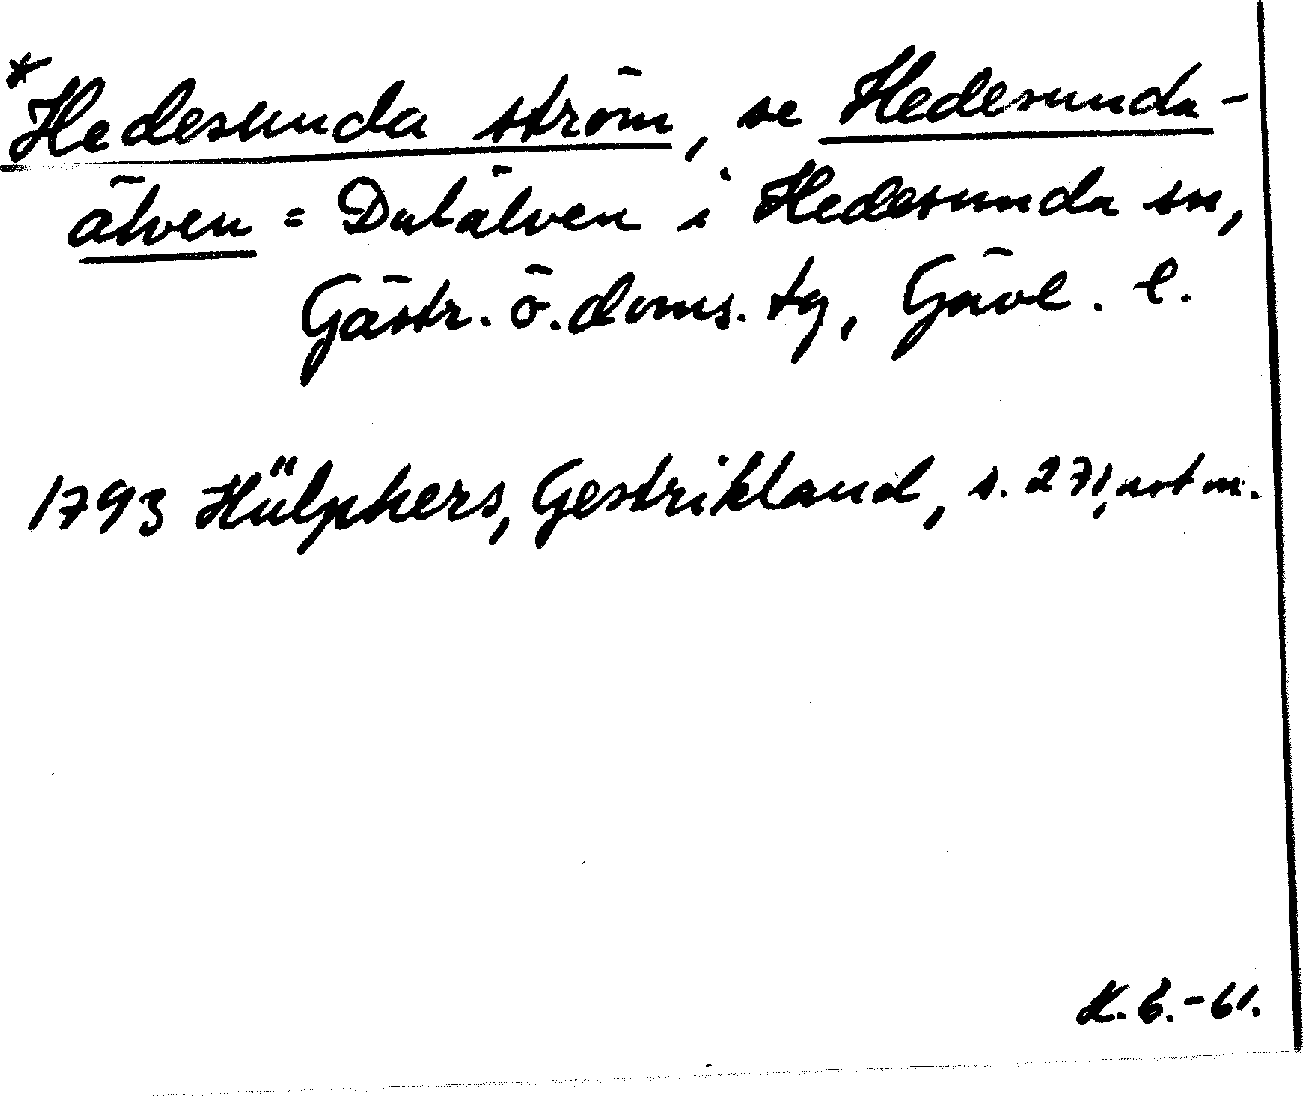 *Hedesunda ström, se Hedesunda-
älven = Dalälven i Hedesunda sn,
Gästr. ö. doms. tg, Gävl. l.
1793 Hülphers, Gestrikland, s. 271, not m.
K. G. -61.